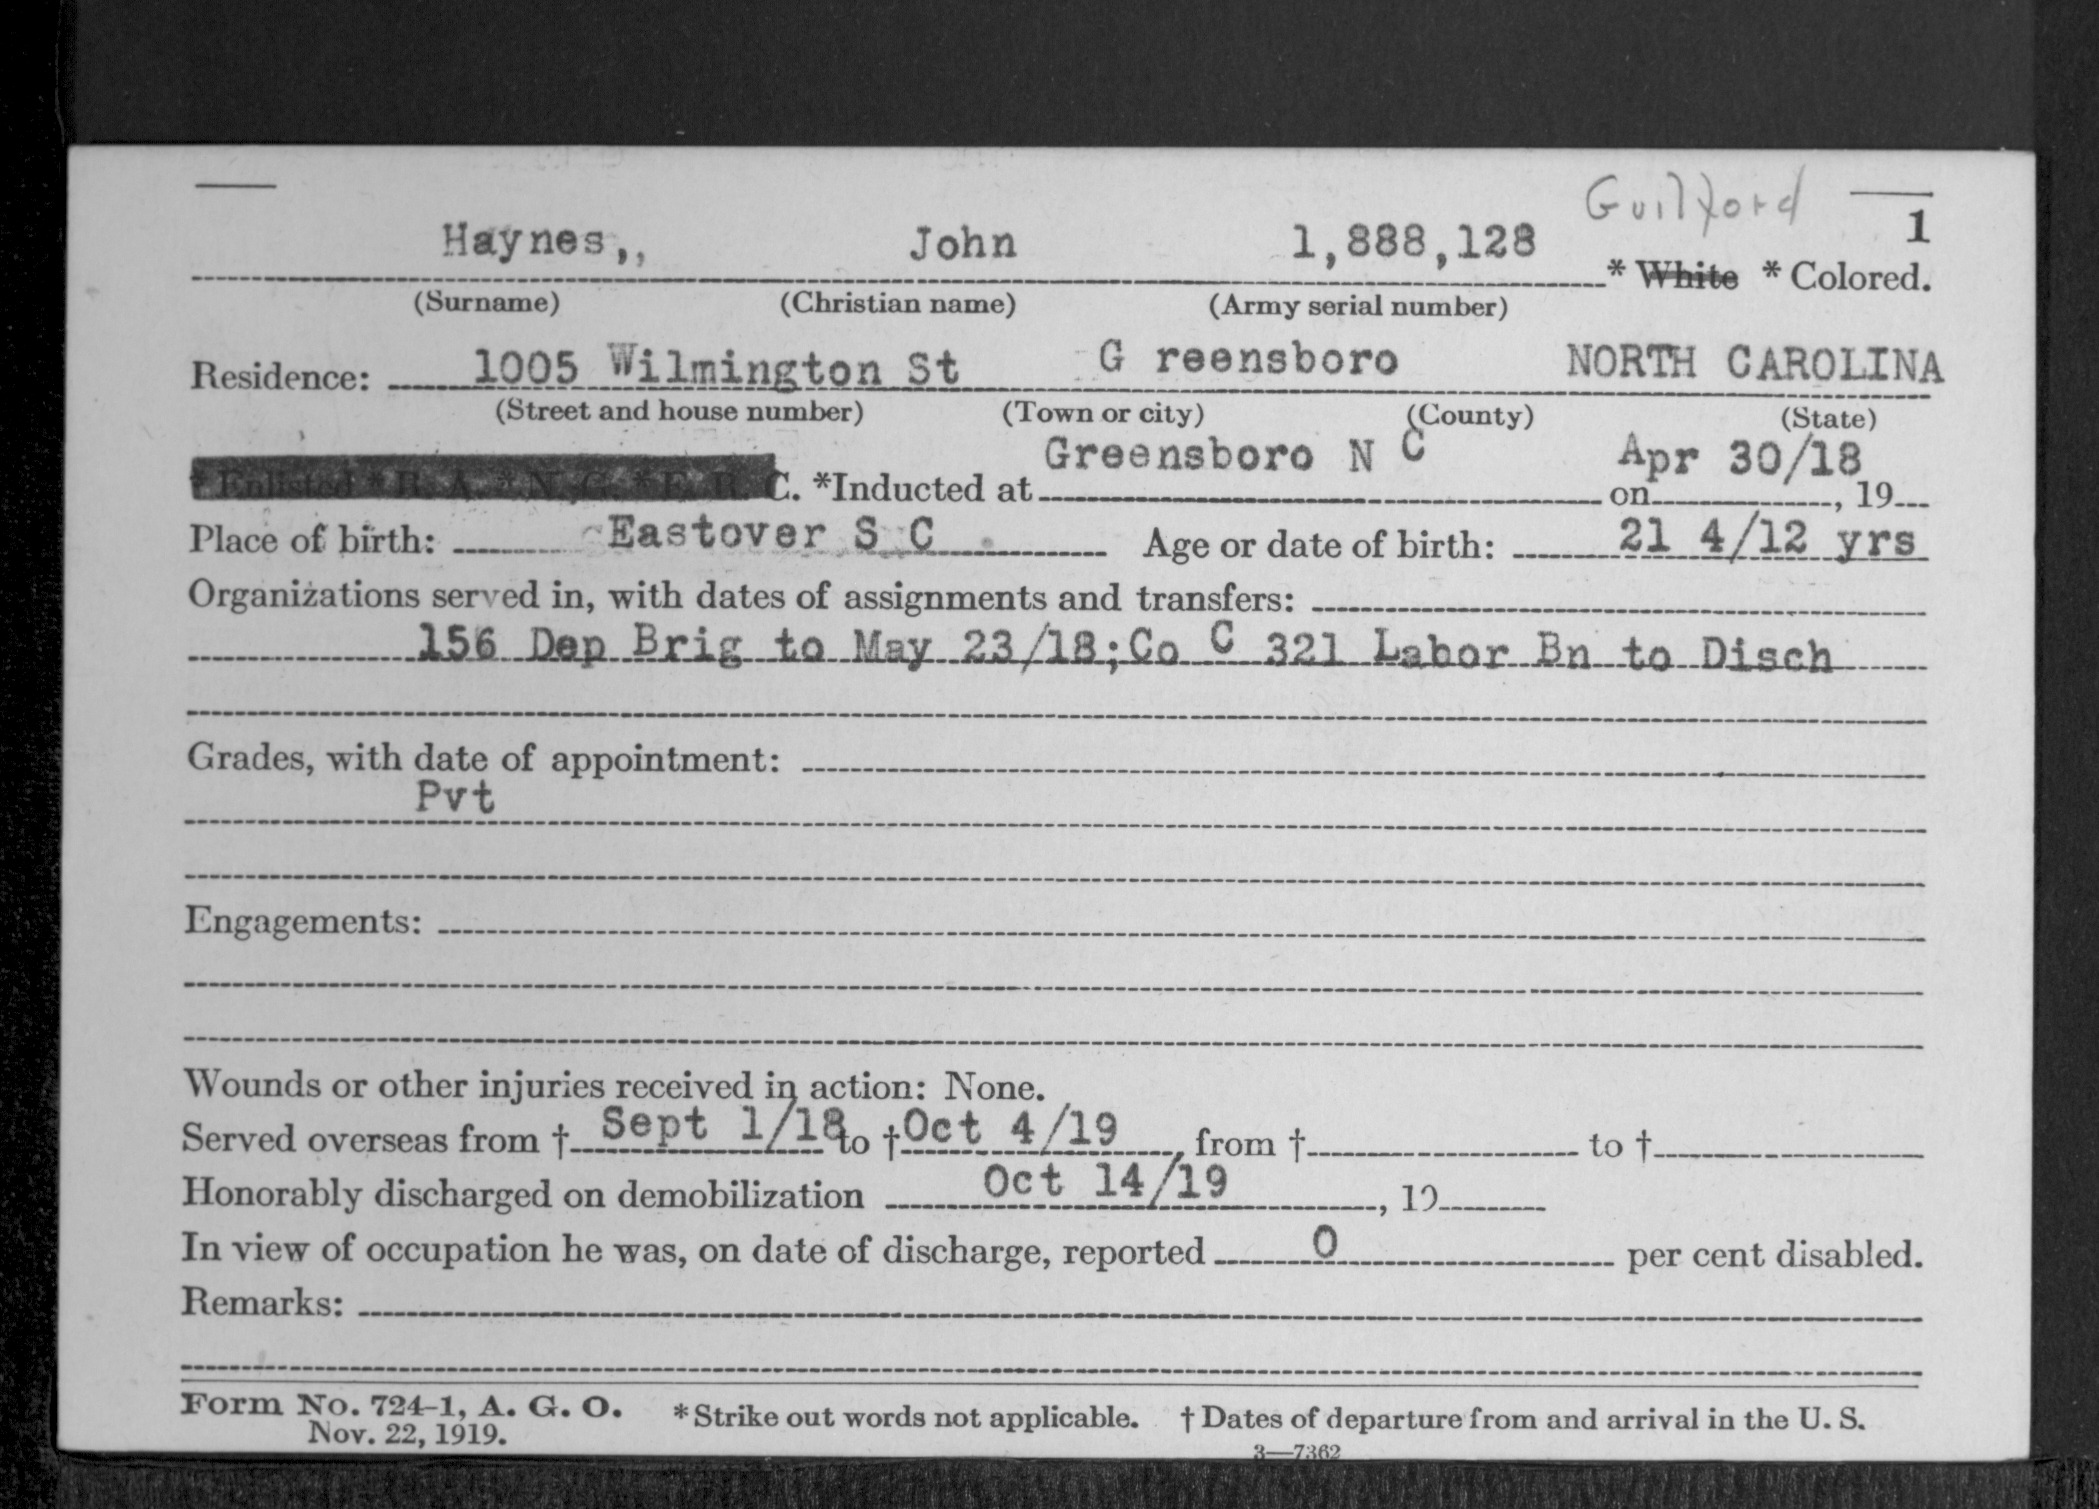 Guilford
1
Haynes,, John 1,888,128 * White * Colored.
(Surname) (Christian name) (Army serial number)
Residence: 1005 Wilmington St G reensboro NORTH CAROLINA
(Street and house number) (Town or city) (County) (State)
* Enlisted * R. A. * N. G. * E. R. C. *Inducted at Greensboro N C on Apr 30/18, 19
Place of birth: Eastover S C Age or date of birth: 21 4/12 yrs
Organizations served in, with dates of assignments and transfers:
156 Dep Brig to May 23/18; Co C 321 Labor Bn to Disch
Grades, with date of appointment:
Pvt
Engagements:
Wounds or other injuries received in action: None.
Served overseas from † Sept 1/18 to † Oct 4/19, from † to †
Honorably discharged on demobilization Oct 14/19, 19
In view of occupation he was, on date of discharge, reported 0 per cent disabled.
Remarks:
Form No. 724-1, A. G. O. * Strike out words not applicable. † Dates of departure from and arrival in the U. S.
Nov. 22, 1919.
3—7362